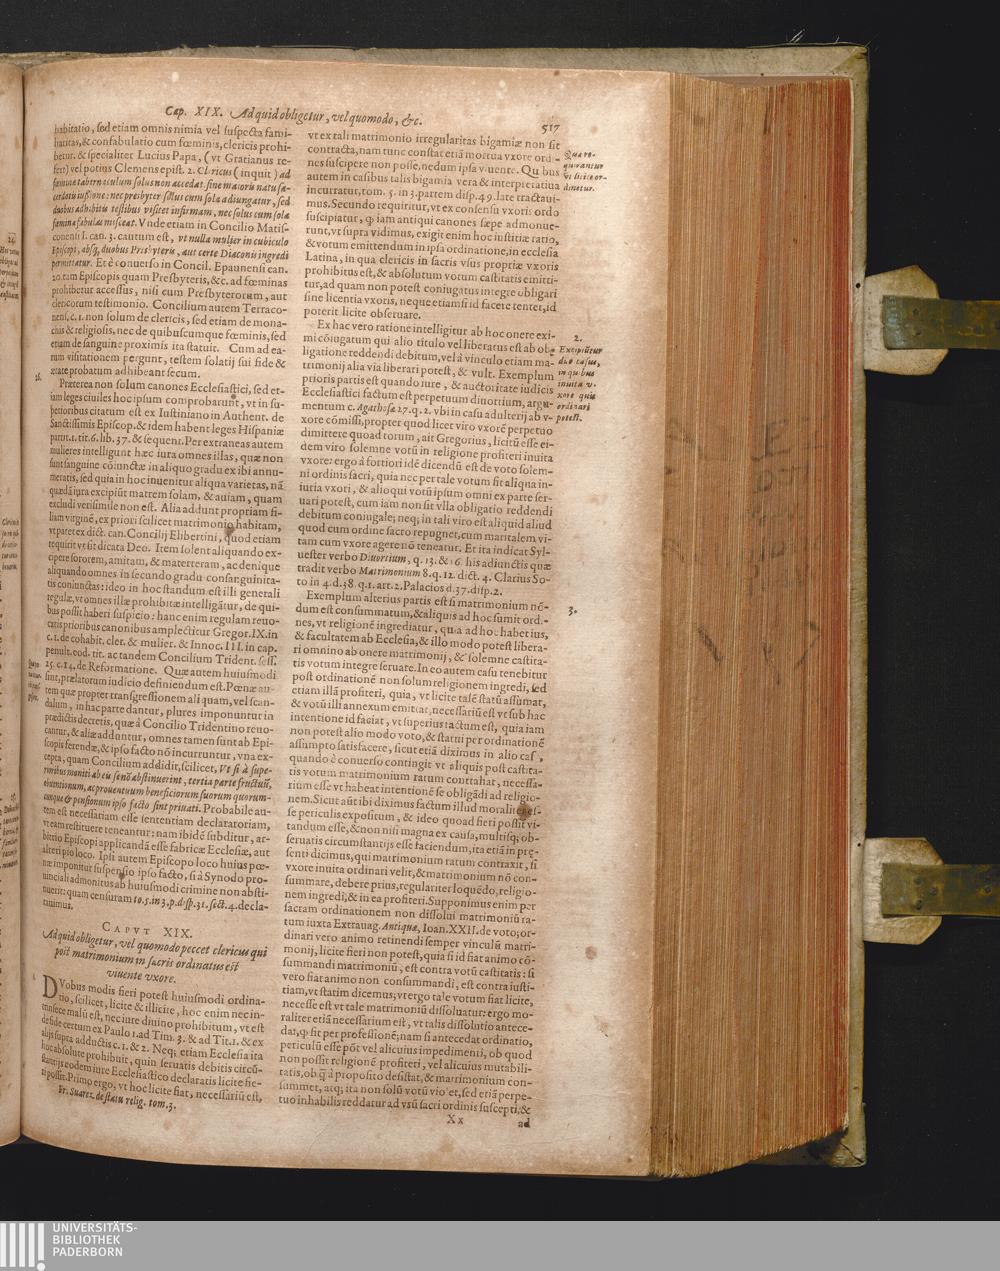 Cap. XIX. Ad quid obligetur, vel quomodo, &c. 517
habitatio, sed etiam omnis nimia vel suspecta fami-
liaritas, & confabulatio cum fœminis, clericis prohi-
betur. & specialiter Lucius Papa, (vt Gratianus re-
fert) vel potius Clemens epist. 2. Clericus (inquit) ad
fœminæ tabernaculum solus non accedat. sine maioris natu sa-
cerdotis iussione: nec presbyter solus cum sola adiungatur, sed
duobus adhibitis testibus visitet infirmam, nec solus cum sola
fœmina fabulas misceat. Vnde etiam in Concilio Matis-
conensi I. can. 3. cautum est, vt nulla mulier in cubiculo
Episcopi, absq; duobus Presbyteris, aut certe Diaconis ingredi
permittatur. Et è conuerso in Concil. Epaunensi can.
20. tam Episcopis quam Presbyteris, &c. ad fœminas
prohibetur accessus, nisi cum Presbyterorum, aut
clericorum testimonio. Concilium autem Terraco-
nens. c. 1. non solum de clericis, sed etiam de mona-
chis & religiosis, nec de quibuscumque fœminis, sed
etiam de sanguine proximis ita statuit. Cum ad ea-
rum visitationem pergunt, testem solatij sui fide &
ætate probatum adhibeant secum.
26.
Præterea non solum canones Ecclesiastici, sed et-
iam leges ciuiles hoc ipsum comprobarunt, vt in su-
perioribus citatum est ex Iustiniano in Authent. de
Sanctissimis Episcop. & idem habent leges Hispaniæ
partit. 1. tit. 6. lib. 37. & sequent. Per extraneas autem
mulieres intelligunt hæc iura omnes illas, quæ non
sunt sanguine coniunctæ in aliquo gradu ex ibi annu-
meratis, sed quia in hoc inuenitur aliqua varietas, nã
quædã iura excipiũt matrem solam, & auiam, quam
excludi verisimile non est. Alia addunt propriam fi-
liam virginẽ, ex priori scilicet matrimonio habitam,
vt patet ex dict. can. Concilij Elibertini, quod etiam
requirit vt sit dicata Deo. Item solent aliquando ex-
cipere sororem, amitam, & materteram, ac denique
aliquando omnes in secundo gradu consanguinita-
tis coniunctas: ideo in hoc standum est illi generali
regulæ, vt omnes illæ prohibitæ intelligãtur, de qui-
bus possit haberi suspicio: hanc enim regulam reuo-
catis prioribus canonibus amplectitur Gregor. IX. in
c. 1. de cohabit. cler. & mulier. & Innoc. III. in cap.
penult. eod. tit. ac tandem Concilium Trident. sess.
25. c. 14. de Reformatione. Quæ autem huiusmodi
sint, prælatorum iudicio definiendum est. Pœnæ au-
tem quæ propter transgressionem aliquam, vel scan-
dalum, in hac parte dantur, plures imponuntur in
prædictis decretis, quæ à Concilio Tridentino reuo-
cantur, & aliæ adduntur, omnes tamen sunt ab Epi-
scopis ferendæ, & ipso facto nõ incurruntur, vna ex-
cepta, quam Concilium addidit, scilicet, Vt si à supe-
rioribus moniti ab eis se nõ abstinuerint, tertia parte fructuũ,
obuentionum, ac prouentuum beneficiorum suorum quorum-
cunque & pensionum ipso facto sint priuati. Probabile au-
tem est necessariam esse sententiam declaratoriam,
vt eam restituere teneantur: nam ibidẽ subditur, ar-
bitrio Episcopi applicandã esse fabricæ Ecclesiæ, aut
alteri pio loco. Ipsi autem Episcopo loco huius pœ-
næ imponitur suspensio ipso facto, si à Synodo pro-
uinciali admonitus ab huiusmodi crimine non absti-
nuerit: quam censuram to. 5. in 3. p. disp. 31. sect. 4. decla-
rauimus.
CAPVT XIX.
Ad quid obligetur, vel quomodo peccet clericus qui
post matrimonium in sacris ordinatus est
viuente vxore.
1.
DVobus modis fieri potest huiusmodi ordina-
tio, scilicet, licite & illicite, hoc enim nec in-
trinsece malũ est, nec iure diuino prohibitum, vt est
de fide certum ex Paulo 1. ad Tim. 3. & ad Tit. 1. & ex
alijs supra adductis c. 1. & 2. Neq; etiam Ecclesia ita
hoc absolute prohibuit, quin seruatis debitis circũ-
stantijs eodem iure Ecclesiastico declaratis licite fie-
ri possit. Primo ergo, vt hoc licite fiat, necessariũ est,
Fr. Suarez de statu relig. tom. 3.
vt ex tali matrimonio irregularitas bigamiæ non sit
contracta, nam tunc constat etiã mortua vxore ordi-
nes suscipere non posse, nedum ipsa viuente. Quibus
autem in casibus talis bigamia vera & interpretatiua
incurratur, tom. 5. in 3. partem disp. 49. late tractaui-
mus. Secundo requiritur, vt ex consensu vxoris ordo
suscipiatur, q; iam antiqui canones sæpe admonue-
runt, vt supra vidimus, exigit enim hoc iustitiæ ratio,
& votum emittendum in ipsa ordinatione, in ecclesia
Latina, in qua clericis in sacris vsus propriæ vxoris
prohibitus est, & absolutum votum castitatis emitti-
tur, ad quam non potest coniugatus integre obligari
sine licentia vxoris, neque etiamsi id facere tentet, id
poterit licite obseruare.
Quæ re-
quirantur
vt licite or-
dinetur.
Ex hac vero ratione intelligitur ab hoc onere exi-
mi cõiugatum qui alio titulo vel liberatus est ab ob-
ligatione reddendi debitum, vel à vinculo etiam ma-
trimonij alia via liberari potest, & vult. Exemplum
prioris partis est quando iure, & auctoritate iudicis
Ecclesiastici factum est perpetuum diuortium, argu-
mentum c. Agathosa 27. q. 2. vbi in casu adulterij ab v-
xore cõmissi, propter quod licet viro vxorẽ perpetuo
dimittere quoad torum, ait Gregorius, licitũ esse ei-
dem viro solemne votũ in religione profiteri inuita
vxore: ergo à fortiori idẽ dicendũ est de voto solem-
ni ordinis sacri, quia nec per tale votum fit aliqua in-
iuria vxori, & alioqui votũ ipsum omni ex parte ser-
uari potest, cum iam non sit vlla obligatio reddendi
debitum coniugale; neq; in tali viro est aliquid aliud
quod cum ordine sacro repugnet, cum maritalem vi-
tam cum vxore agere nõ teneatur. Et ita indicat Syl-
uester verbo Diuortium, q. 13. & 16. his adiunctis quæ
tradit verbo Matrimonium 8. q. 12. dict. 4. Clarius So-
to in 4. d. 38. q. 1. art. 2. Palacios d. 37. disp. 2.
2.
Excipiũtur
duo casus,
in quibus
inuita v-
xore quis
ordinari
potest.
3.
Exemplum alterius partis est si matrimonium nõ-
dum est consummatum, & aliquis ad hoc sumit ordi-
nes, vt religionẽ ingrediatur, quia ad hoc habet ius,
& facultatem ab Ecclesia, & illo modo potest libera-
ri omnino ab onere matrimonij, & solemne castita-
tis votum integre seruare. In eo autem casu tenebitur
post ordinationẽ non solum religionem ingredi, sed
etiam illã profiteri, quia, vt licite talẽ statũ assumat,
& votũ illi annexum emittat, necessariũ est vt sub hac
intentione id faciat, vt superius tactum est, quia iam
non potest alio modo voto, & statui per ordinationẽ
assumpto satisfacere, sicut etiã diximus in alio casu,
quando è conuerso contingit vt aliquis post castita-
tis votum matrimonium ratum contrahat, necessa-
rium esse vt habeat intentionẽ se obligãdi ad religio-
nem. Sicut aũt ibi diximus factum illud moraliter es-
se periculis expositum, & ideo quoad fieri possit vi-
tandum esse, & non nisi magna ex causa, multisq; ob-
seruatis circumstantijs esse faciendum, ita etiã in præ-
senti dicimus, qui matrimonium ratum contraxit, si
vxore inuita ordinari velit, & matrimonium nõ con-
summare, debere prius, regulariter loquẽdo, religio-
nem ingredi, & in ea profiteri. Supponimus enim per
sacram ordinationem non dissolui matrimoniũ ra-
tum iuxta Extrauag. Antiquæ, Ioan. XXII. de voto; or-
dinari vero animo retinendi semper vinculũ matri-
monij, licite fieri non potest, quia si id fiat animo cõ-
summandi matrimoniũ, est contra votũ castitatis: si
vero fiat animo non consummandi, est contra iusti-
tiam, vt statim dicemus, vt ergo tale votum fiat licite,
necesse est vt tale matrimoniũ dissoluatur: ergo mo-
raliter etiã necessarium est, vt talis dissolutio antece-
dat, q; fit per professionẽ; nam si antecedat ordinatio,
periculũ esse põt vel alicuius impedimenti, ob quod
non possit religionẽ profiteri, vel alicuius mutabili-
tatis, ob q̃ à proposito desistat, & matrimonium con-
summet, atq; ita non solũ votũ violet, sed etiã perpe-
tuo inhabilis reddatur ad vsũ sacri ordinis suscepti; &
Xx
ad
UNIVERSITÄTS-
BIBLIOTHEK
PADERBORN